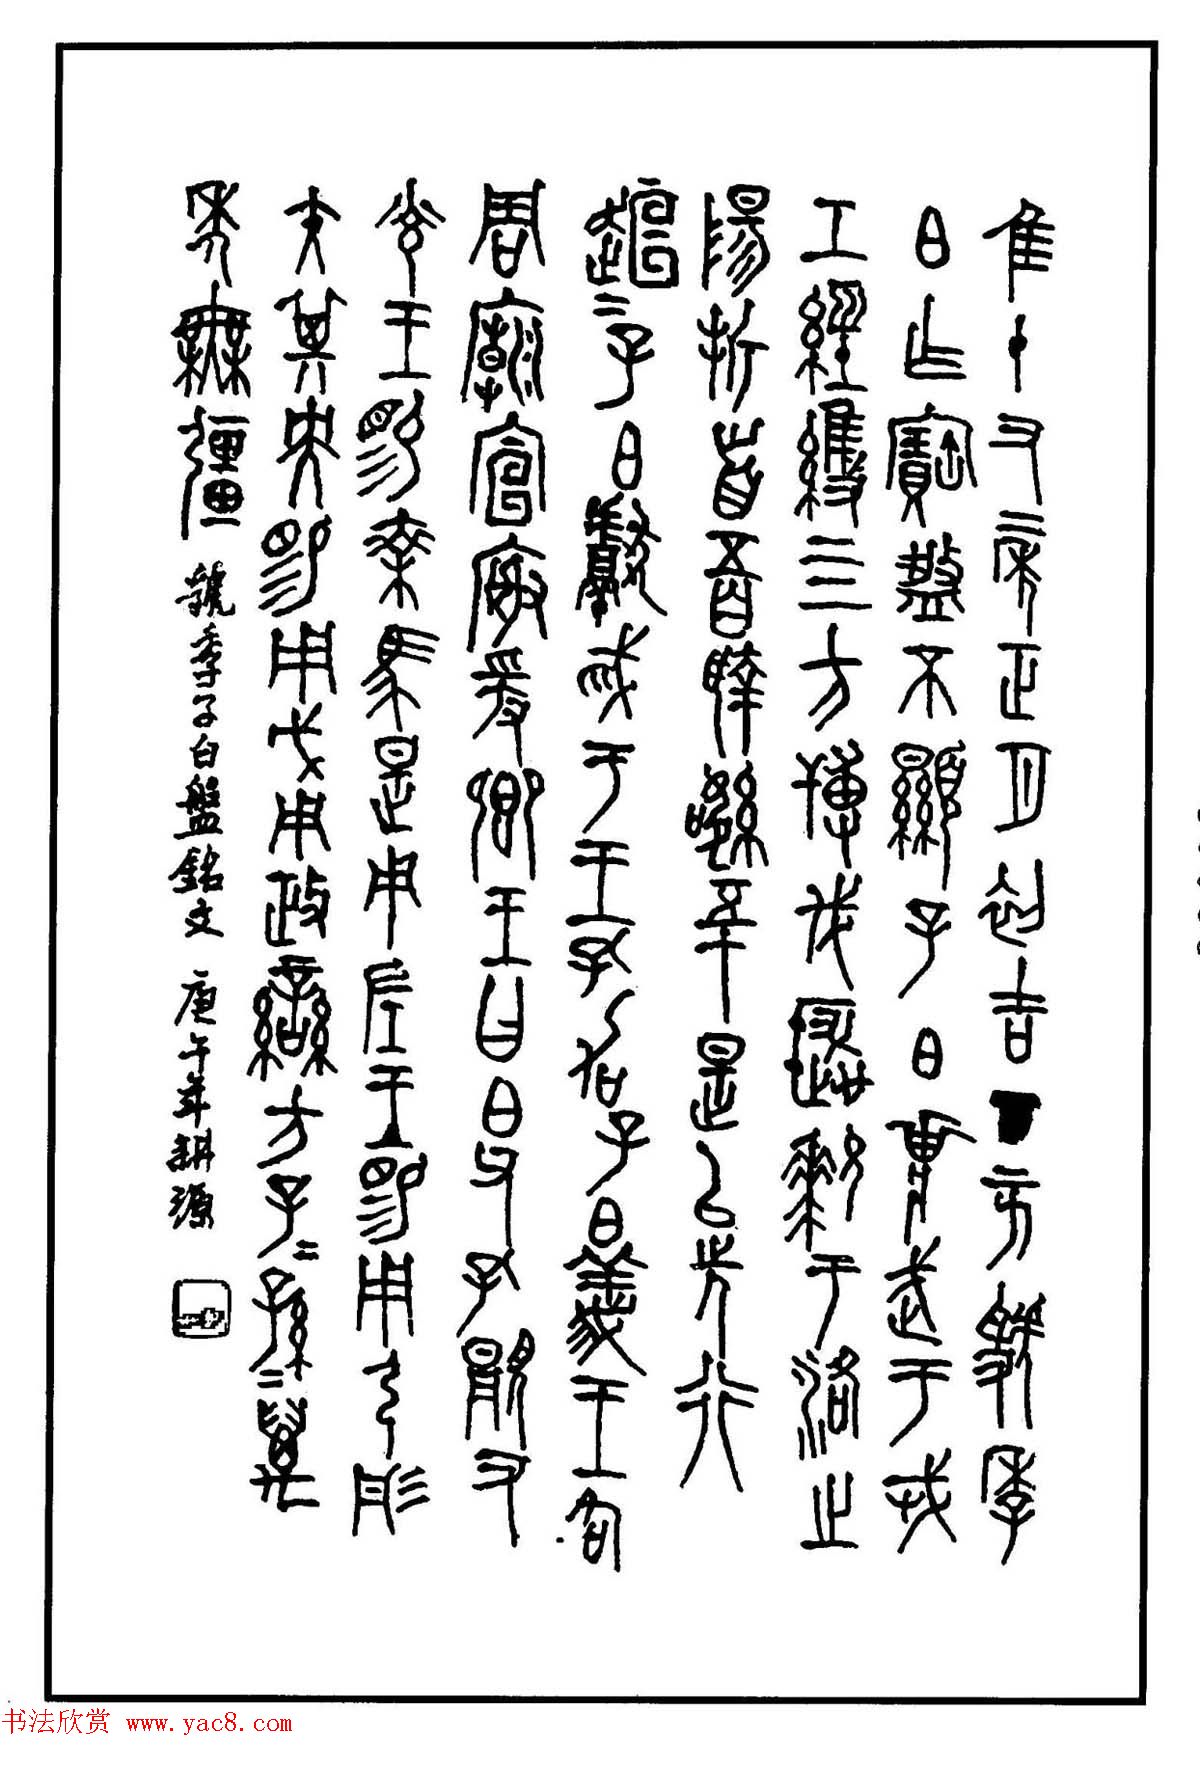 隹十又二年正月初吉丁亥虢季
白乍寶盤不顯子白壯武于戎
工經維四方搏伐玁狁于洛之
陽折首五百執訊五十是以先行
桓=子白獻馘于王孔加子白義王各
周廟宣廚爰鄉王曰白父孔顯又
光王賜乘馬是用左王賜用弓彤
矢其央賜用戉用政蠻方子=孫=萬
年無疆 虢季子白盤銘文 庚午年耕源
书法欣赏 www.yac8.com